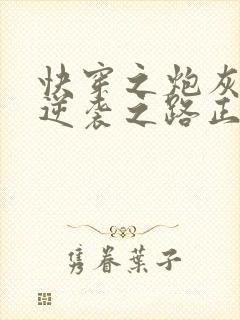 快穿之炮灰
逆袭之路正
隽眷叶子